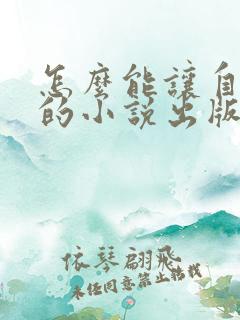 怎麼能讓自
的小說出版
依琴翩飛
未经同意禁止转载